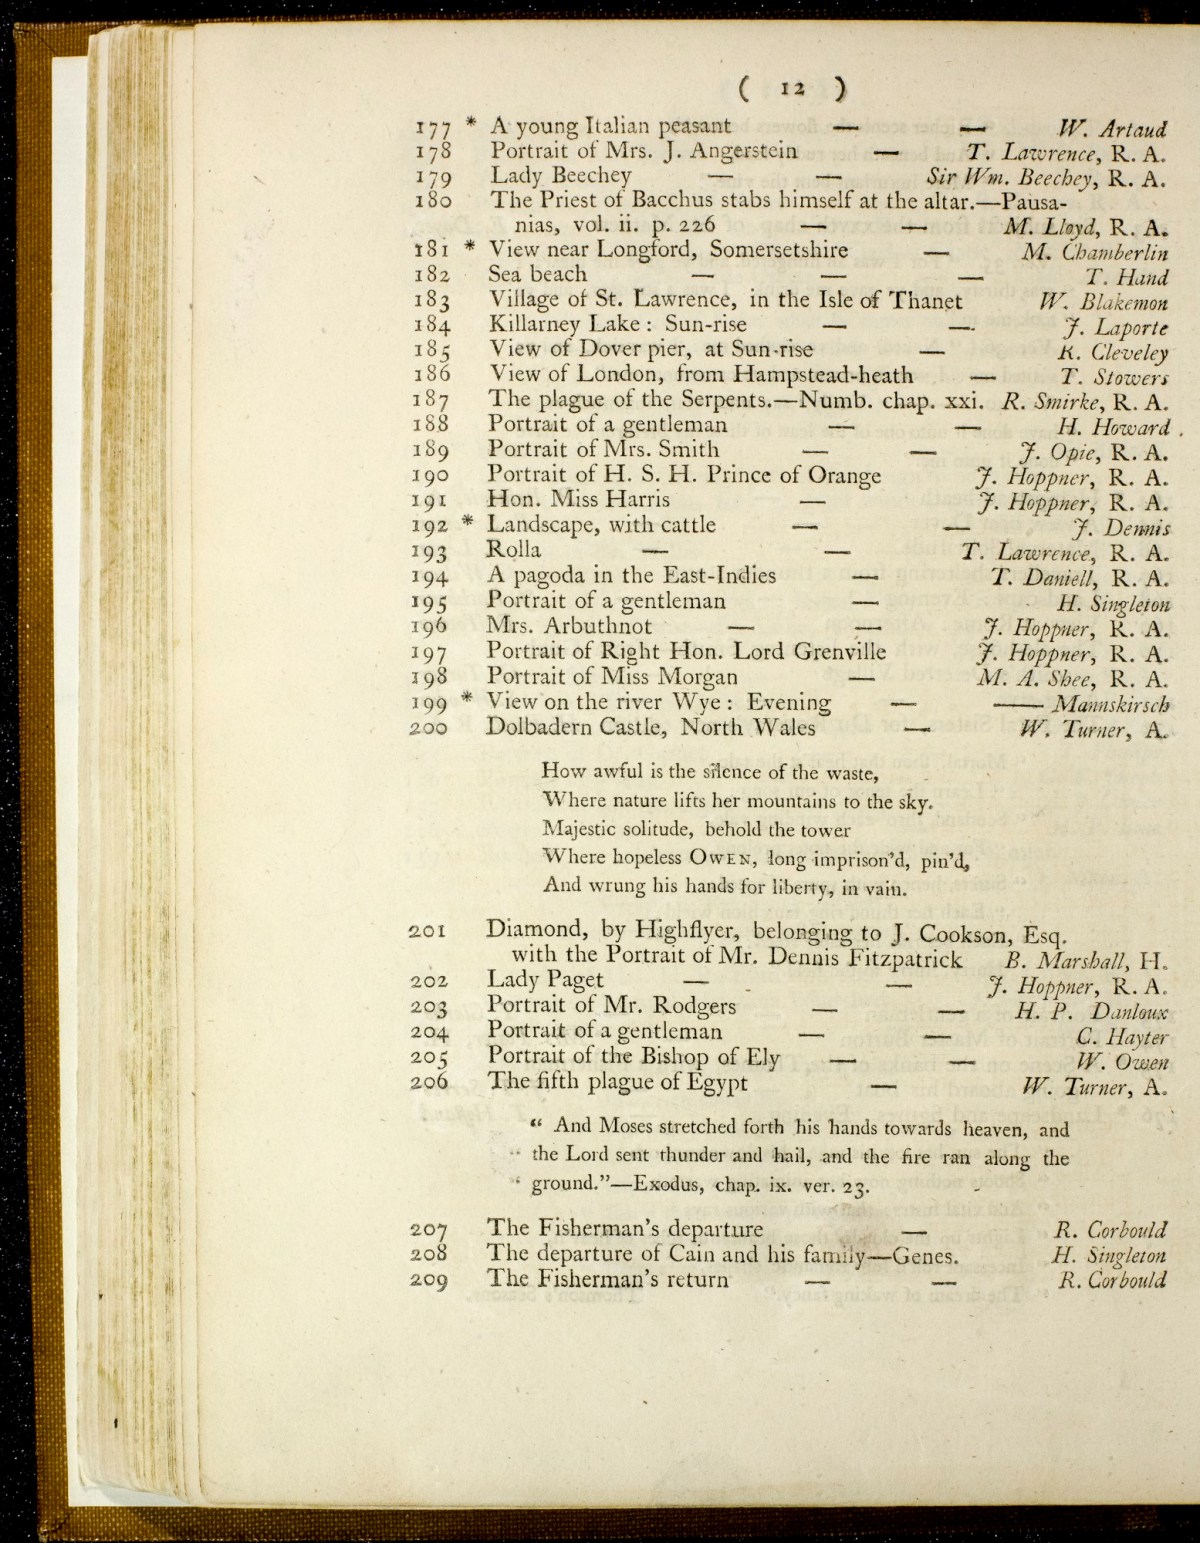 ( 12 )
177 * A young Italian peasant — — W. Artaud
178 Portrait of Mrs. J. Angerstein — T. Lawrence, R. A.
179 Lady Beechey — — Sir Wm. Beechey, R. A.
180 The Priest of Bacchus stabs himself at the altar.—Pausa-
nias, vol. ii. p. 226 — — M. Lloyd, R. A.
181 * View near Longford, Somersetshire — M. Chamberlin
182 Sea beach — — — T. Hand
183 Village of St. Lawrence, in the Isle of Thanet W. Blakemon
184 Killarney Lake : Sun-rise — — J. Laporte
185 View of Dover pier, at Sun-rise — R. Cleveley
186 View of London, from Hampstead-heath — T. Stowers
187 The plague of the Serpents.—Numb. chap. xxi. R. Smirke, R. A.
188 Portrait of a gentleman — — H. Howard .
189 Portrait of Mrs. Smith — — J. Opie, R. A.
190 Portrait of H. S. H. Prince of Orange J. Hoppner, R. A.
191 Hon. Miss Harris — J. Hoppner, R. A.
192 * Landscape, with cattle — — J. Dennis
193 Rolla — — T. Lawrence, R. A.
194 A pagoda in the East-Indies — T. Daniell, R. A.
195 Portrait of a gentleman — H. Singleton
196 Mrs. Arbuthnot — — J. Hoppner, R. A.
197 Portrait of Right Hon. Lord Grenville J. Hoppner, R. A.
198 Portrait of Miss Morgan — M. A. Shee, R. A.
199 * View on the river Wye : Evening — —— Mannskirsch
200 Dolbadern Castle, North Wales — W. Turner, A.
How awful is the silence of the waste,
Where nature lifts her mountains to the sky.
Majestic solitude, behold the tower
Where hopeless OWEN, long imprison'd, pin'd,
And wrung his hands for liberty, in vain.
201 Diamond, by Highflyer, belonging to J. Cookson, Esq.
with the Portrait of Mr. Dennis Fitzpatrick B. Marshall, H.
202 Lady Paget — — J. Hoppner, R. A.
203 Portrait of Mr. Rodgers — — H. P. Danloux
204 Portrait of a gentleman — — C. Hayter
205 Portrait of the Bishop of Ely — — W. Owen
206 The fifth plague of Egypt — W. Turner, A.
“ And Moses stretched forth his hands towards heaven, and
“ the Lord sent thunder and hail, and the fire ran along the
“ ground.”—Exodus, chap. ix. ver. 23.
207 The Fisherman's departure — R. Corbould
208 The departure of Cain and his family—Genes. H. Singleton
209 The Fisherman's return — — R. Corbould